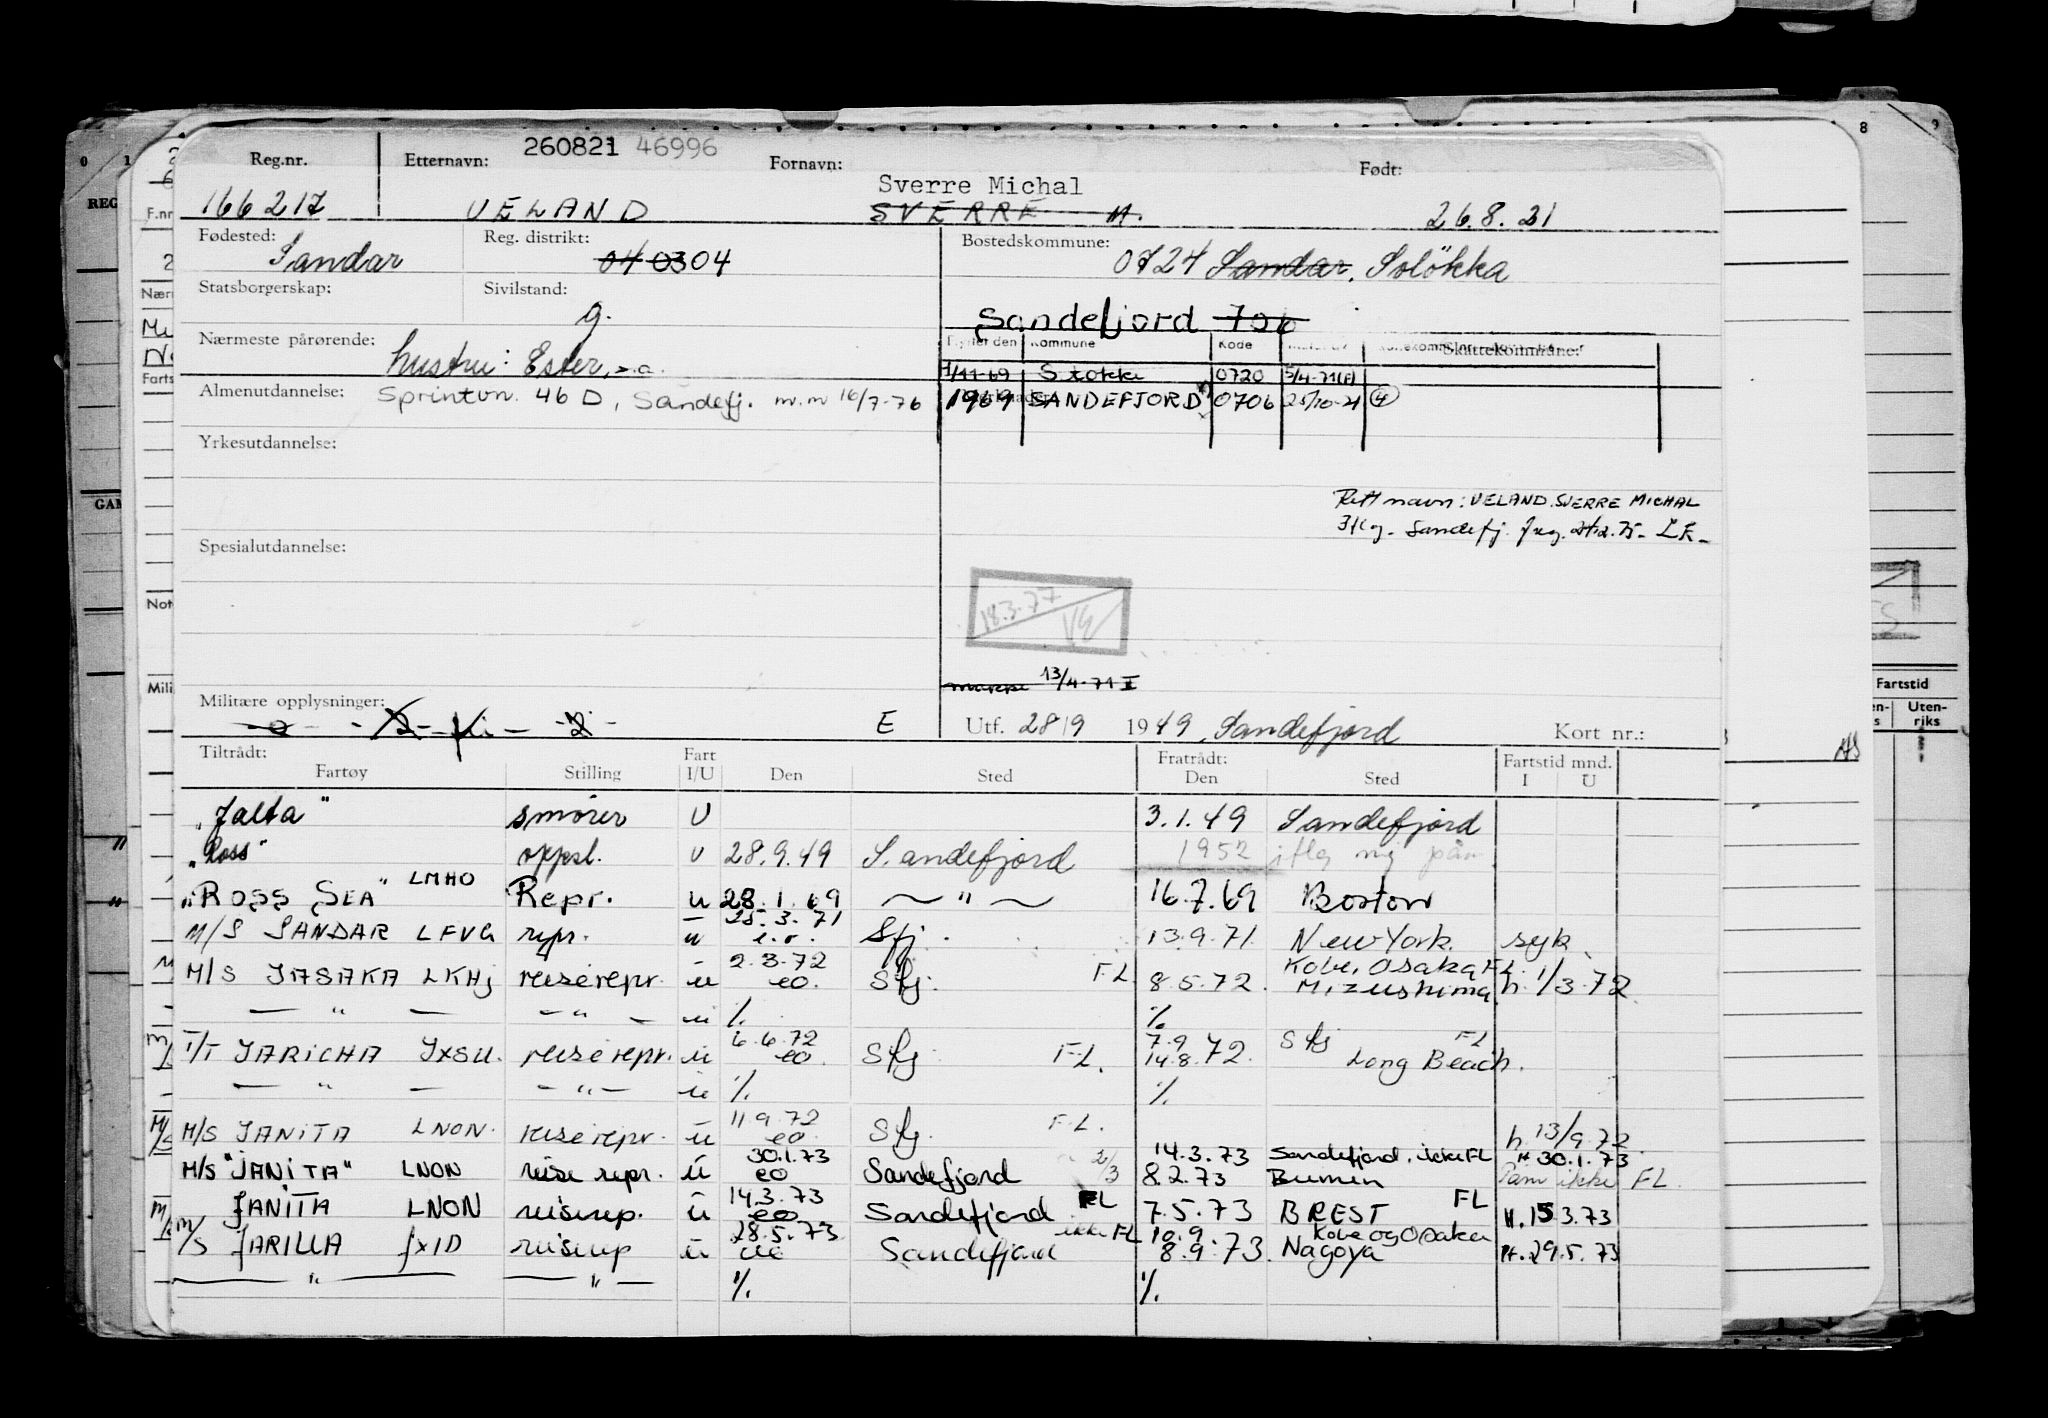 260821 46996
Reg.nr. Etternavn: Fornavn: Født:
Sverre Michal
166217 VELAND SVERRE M. 26.8.21
Fødested: Reg. distrikt: Bostedskommune:
Sandar 04 03 04 0724 Sandar, Solökka
Statsborgerskap: Sivilstand:
g. Sandefjord 706
Nærmeste pårørende: Flyttet den Kommune Kode Skattekommune:
hustru: Ester, s.a. 1/11-69 Stokke 0720 5/4-71(F)
Almenutdannelse: Sprintvn. 46 D, Sandefj. m.m 16/7-76 1969 SANDEFJORD 0706 25/10-71 4
Yrkesutdannelse:
Rett navn: VELAND. SVERRE MICHAL
Spesialutdannelse:
18.3.77
13/4-71
Militære opplysninger:
E Utf. 28/9 1949, Sandefjord Kort nr.:
Tiltrådt: Fart Fratrådt: Fartstid mnd.
Fartøy Stilling I/U Den Sted Den Sted I U
"Jalta" smører U 3.1.49 Sandefjord
"Ross" oppsl. U 28.9.49 Sandefjord 1952
"ROSS SEA" LMHO Repr. u 28.1.69 — " — 16.7.69 Boston
M/S SANDAR LFVG repr. u 25.3.71 Sfj. 13.9.71 New York. syk
M/S JASAKA LKHJ reiserepr. u 2.3.72 eo. Sfj. FL 8.5.72 Kobe, Osaka FL. Mizushima h. 1/3-72
— " — — " — u %. %.
T/T JARICHA JXSU. reiserepr. u 6.6.72 eo. Sfj. FL. 7.9 14.8.72. Sfj FL Long Beach.
— " — — " — u %. %.
M/S JANITA LNON. reiserepr. u 11.9.72 eo. Sfj. F.L. h. 13/9.72
M/S "JANITA" LNON reise repr. u 30.1.73 eo Sandefjord 2/3 14.3.73 8.2.73 Sandefjord, ikke FL Bremen 30.1.73 Påm ikke FL.
JANITA LNON reiserep. u 14.3.73 eo Sandefjord FL 7.5.73 BREST FL H.15.3.73
M/S JARILLA JXID reiserep u 28.5.73 Sandefjord ikke FL 10.9. 8.9.73. Kobe og Osaka Nagoya H.29.5.73
— " — — " — %. %.
Fartstid
Uten-
riks